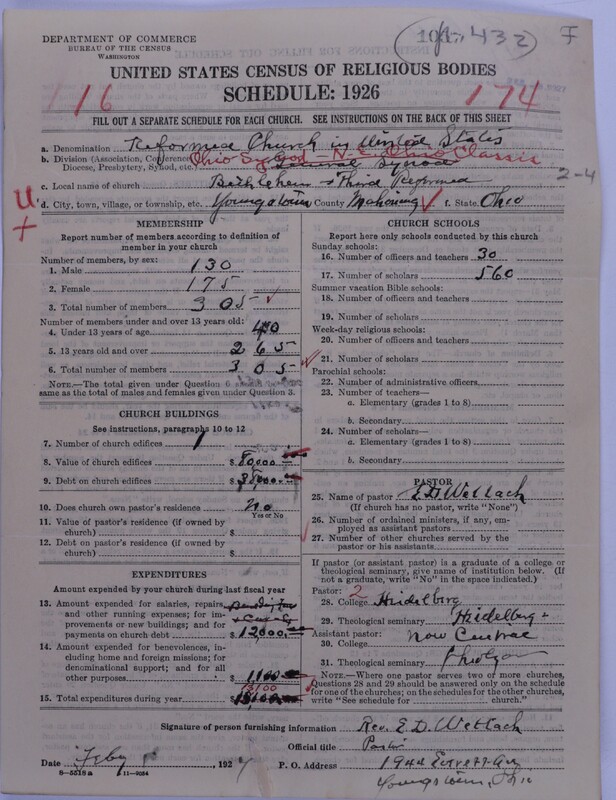 DEPARTMENT OF COMMERCE
BUREAU OF THE CENSUS
WASHINGTON
432
F
UNITED STATES CENSUS OF RELIGIOUS BODIES
SCHEDULE: 1926
116
174
FILL OUT A SEPARATE SCHEDULE FOR EACH CHURCH. SEE INSTRUCTIONS ON THE BACK OF THIS SHEET
a. Denomination Reformed Church in United States
b. Division (Association, Conference, Diocese, Presbytery, Synod, etc.) Ohio Synod - N.E. Ohio Classis
2-4
c. Local name of church Bethlehem & Third Reformed
d. City, town, village, or township, etc. Youngstown County Mahoning f. State Ohio
U
+
MEMBERSHIP
Report number of members according to definition of
member in your church
Number of members, by sex:
1. Male 130
2. Female 175
3. Total number of members 305
Number of members under and over 13 years old:
4. Under 13 years of age 40
5. 13 years old and over 265
6. Total number of members 305
NOTE.—The total given under Question 6 should be the
same as the total of males and females given under Question 3.
CHURCH BUILDINGS
See instructions, paragraphs 10 to 12
7. Number of church edifices 1
8. Value of church edifices $ 80,000.
9. Debt on church edifices $ 38,000.
10. Does church own pastor's residence? No
Yes or No
11. Value of pastor's residence (if owned by
church) $
12. Debt on pastor's residence (if owned by
church) $
EXPENDITURES
Amount expended by your church during last fiscal year
13. Amount expended for salaries, repairs,
and other running expenses; for im-
provements or new buildings; and for
payments on church debt $ 12000.
14. Amount expended for benevolences,
including home and foreign missions; for
denominational support; and for all
other purposes $ 1100
13100
15. Total expenditures during year $
CHURCH SCHOOLS
Report here only schools conducted by this church
Sunday schools:
16. Number of officers and teachers 30
17. Number of scholars 560
Summer vacation Bible schools:
18. Number of officers and teachers
19. Number of scholars
Week-day religious schools:
20. Number of officers and teachers
21. Number of scholars
Parochial schools:
22. Number of administrative officers
23. Number of teachers—
a. Elementary (grades 1 to 8)
b. Secondary
24. Number of scholars—
a. Elementary (grades 1 to 8)
b. Secondary
PASTOR
25. Name of pastor E. D. Wettach
(If church has no pastor, write "None")
26. Number of ordained ministers, if any, em-
ployed as assistant pastors
27. Number of other churches served by the
pastor or his assistants
If pastor (or assistant pastor) is a graduate of a college or
theological seminary, give name of institution below. (If
not a graduate, write "No" in the space indicated.)
Pastor: 2
28. College Heidelberg
29. Theological seminary Heidelberg -
Assistant pastor: now Central
30. College
31. Theological seminary
NOTE.—Where one pastor serves two or more churches,
Questions 28 and 29 should be answered only on the schedule
for one of the churches; on the schedules for the other churches,
write "See schedule for church."
Signature of person furnishing information Rev. E. D. Wettach
Official title Pastor
Date Feby , 192
P. O. Address 1944 Everett Av
8—5518 a 11—9034
Youngstown, Ohio